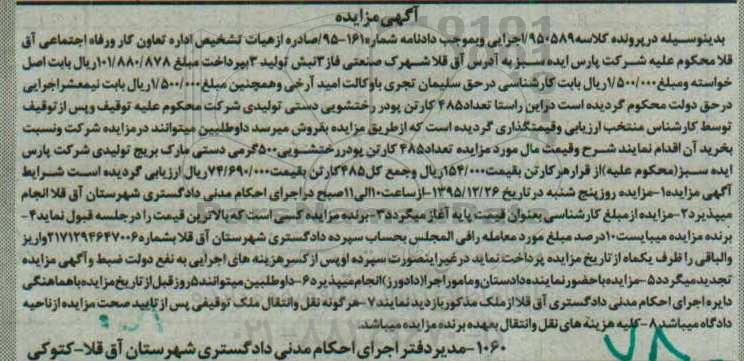 آگهی مزایده
بدینوسیله در پرونده کلاسه ۹۵۰۵۸۹/اجرایی وبموجب دادنامه شماره ۱۶۱-۹۵/صادره از هیات تشخیص اداره تعاون کار ورفاه اجتماعی آق
قلا محکوم علیه شرکت پارس ایده سبز به آدرس آق قلا شهرک صنعتی فاز۳ نبش تولید ۳ بپرداخت مبلغ ۱۰۱/۸۸۰/۸۷۸ریال بابت اصل
خواسته ومبلغ ۱/۵۰۰/۰۰۰ریال بابت کارشناسی در حق سلیمان تجری باوکالت امید آرخی وهمچنین مبلغ ۱/۵۰۰/۰۰۰ریال بابت نیمعشراجرایی
در حق دولت محکوم گردیده است دراین راستا تعداد۴۸۵ کارتن پودر رختشویی دستی تولیدی شرکت محکوم علیه توقیف وپس از توقیف
توسط کارشناس منتخب ارزیابی وقیمتگذاری گردیده است که ازطریق مزایده بفروش میرسد داوطلبین میتوانند درمزایده شرکت ونسبت
بخرید آن اقدام نمایند شرح وقیمت مال مورد مزایده تعداد۴۸۵ کارتن پودررختشویی۵۰۰گرمی دستی مارک بریج تولیدی شرکت پارس
ایده سبز(محکوم علیه)از قرارهرکارتن بقیمت۱۵۴/۰۰۰ریال وجمع کل۴۸۵کارتن بقیمت۷۴/۶۹۰/۰۰۰ریال ارزیابی گردیده است شرایط
آگهی مزایده۱-مزایده روزپنج شنبه در تاریخ ۱۳۹۵/۱۲/۲۶-ازساعت۱۰الی۱۱صبح دراجرای احکام مدنی دادگستری شهرستان آق قلا انجام
میپذیرد۲-مزایده ازمبلغ کارشناسی بعنوان قیمت پایه آغاز میگردد۳-برنده مزایده کسی است که بالاترین قیمت را درجلسه قبول نماید۴-
برنده مزایده میبایست۱۰درصد مبلغ مورد معامله رافی المجلس بحساب سپرده دادگستری شهرستان آق قلا بشماره۲۱۷۱۲۹۴۶۴۷۰۰۶واریز
والباقی را ظرف یکماه ازتاریخ مزایده پرداخت نماید درغیراینصورت سپرده اوپس ازکسرهزینه های اجرایی به نفع دولت ضبط وآگهی مزایده
تجدیدمیگردد۵-مزایده باحضورنماینده دادستان ومامور اجرا(دادورز)انجام میپذیرد۶-داوطلبین میتوانند۵روزقبل ازتاریخ مزایده باهماهنگی
دایره اجرای احکام مدنی دادگستری آق قلا ازملک مذکوربازدید نمایند۷-هرگونه نقل وانتقال ملک توقیفی پس ازتایید صحت مزایده ازناحیه
دادگاه میباشد۸-کلیه هزینه های نقل وانتقال بعهده برنده مزایده میباشد.
۱۰۶۰-مدیردفتراجرای احکام مدنی دادگستری شهرستان آق قلا-کتوکی